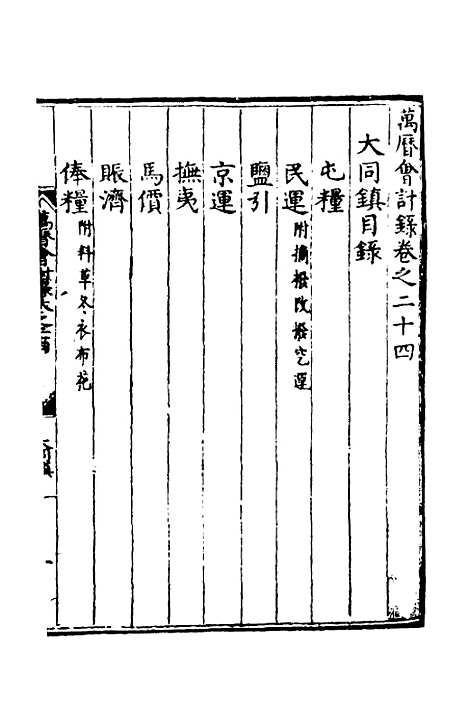 萬曆會計錄卷之二十四
大同鎮目錄
屯糧
民運附摘撥改撥空運
鹽引
京運
撫夷
馬價
賑濟
俸糧附料草冬衣布花
萬曆會計錄